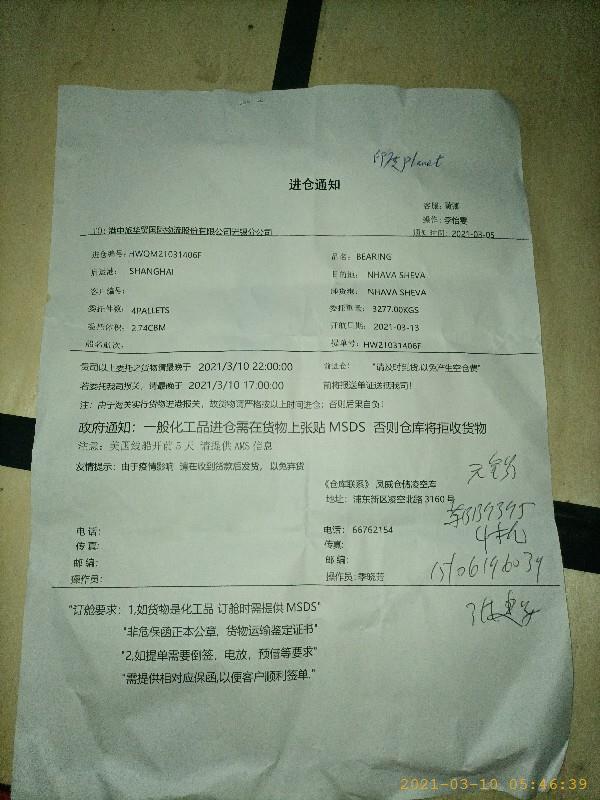 印度planet
进仓通知
客服:
操作: 李怡雯
TO: 港中旅华贸国际物流股份有限公司无锡分公司
通知时间: 2021-03-05
进仓编号: HWQM21031406F
品名: BEARING
启运港: SHANGHAI
目的地: NHAVA SHEVA
客户编号:
卸货港: NHAVA SHEVA
委托件数: 4PALLETS
委托重量: 3277.00KGS
委托体积: 2.74CBM
开航日期: 2021-03-13
船名航次:
提单号: HW21031406F
贵司以上委托之货物请最晚于 2021/3/10 22:00:00 前进仓: "请及时到货,以免产生空仓费"
若委托我司报关, 请最晚于 2021/3/10 17:00:00 前将报送单证送抵我司!
注: 由于海关实行货物进港报关, 故货物请严格按以上时间进仓; 否则后果自负!
政府通知: 一般化工品进仓需在货物上张贴 MSDS 否则仓库将拒收货物
注意: 美西线船开前 5 天 请提供 AMS 信息
友情提示: 由于疫情影响 请在收到货款后发货, 以免弃货
《仓库联系》 凤威仓储凌空库
地址: 浦东新区凌空北路 3160 号
电话:
电话: 66762154
传真:
传真:
邮编:
邮编:
操作员:
操作员: 季晓芳
4机
15106196039
"订舱要求: 1,如货物是化工品 订舱时需提供 MSDS"
"非危保函正本公章, 货物运输鉴定证书"
"2,如提单需要倒签, 电放, 预借等要求"
"需提供相对应保函,以便客户顺利签单."
2021-03-10 05:46:39